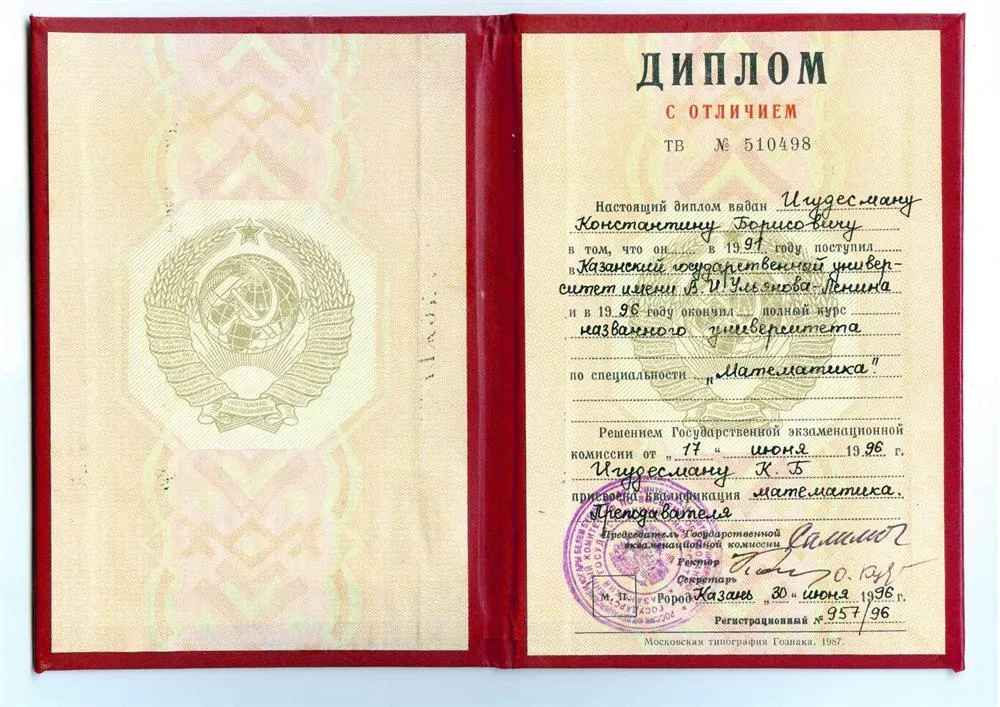 ДИПЛОМ
С ОТЛИЧИЕМ
ТВ № 510498
Настоящий диплом выдан Игудесману
Константину Борисовичу
в том, что он в 1991 году поступил
в Казанский государственный универ-
ситет имени В.И. Ульянова-Ленина
и в 1996 году окончил полный курс
названного университета
по специальности „Математика".
Решением Государственной экзаменационной
комиссии от „17" июня 1996 г.
Игудесману К. Б
присвоена квалификация математика.
Преподавателя
Председатель Государственной
экзаменационной комиссии
Ректор
Секретарь
М. П. Город Казань „30" июня 1996 г.
Регистрационный № 957/96
Московская типография Гознака. 1987.